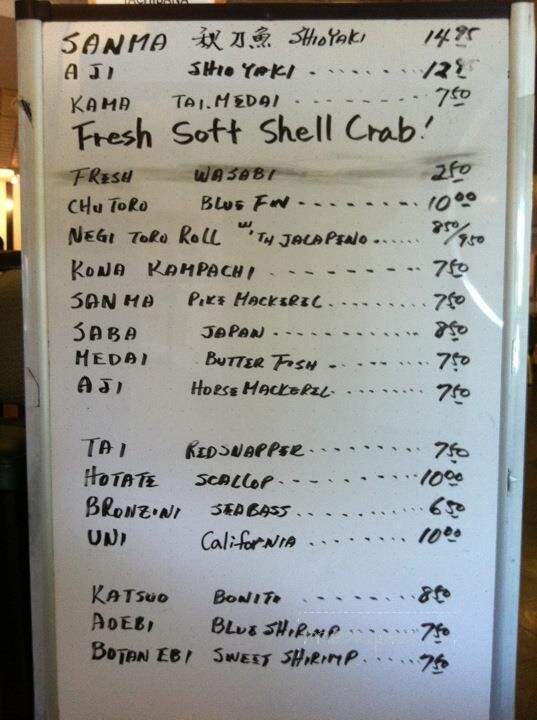 TACHIBANA
SANMA 秋刀魚 SHIOYAKI 14.95
AJI SHIOYAKI ....... 12.95
KAMA TAI.MEDAI .......... 7.50
Fresh Soft Shell Crab!
FRESH WASABI 2.50
CHUTORO BLUE FIN ......... 10.00
NEGI TORO ROLL W/TH JALAPENO ...... 8.50/9.50
KONA KAMPACHI .......... 7.50
SANMA PIKE MACKEREL ........ 7.50
SABA JAPAN ............ 8.50
MEDAI BUTTER FISH ......... 7.50
AJI HORSE MACKEREL ........ 7.50
TAI RED SNAPPER .......... 7.50
HOTATE SCALLOP ........... 10.00
BRONZINI SEABASS ........... 6.50
UNI California ......... 10.00
KATSUO BONITO ........... 8.50
AOEBI BLUE SHIRIMP ....... 7.50
BOTAN EBI SWEET SHIRIMP ..... 7.50